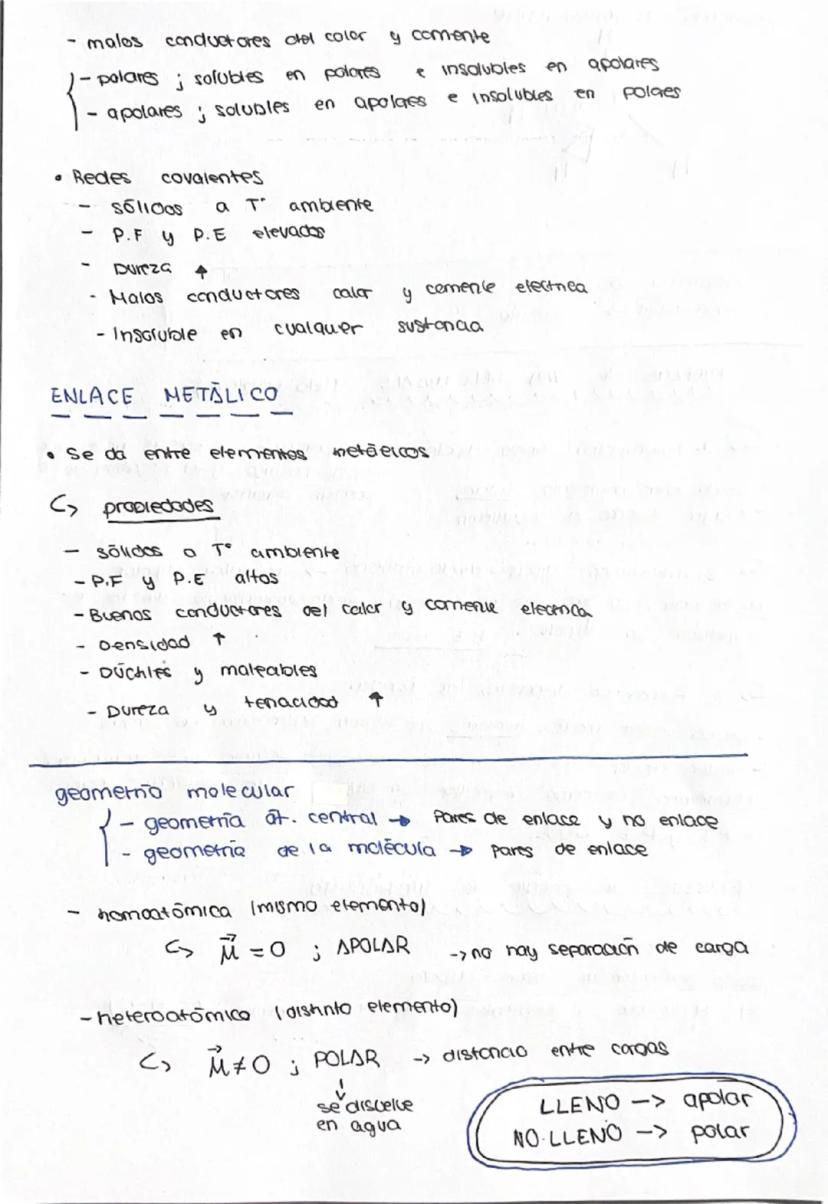 - malos conductores del calor y corriente
- polares ; solubles en polares e insolubles en apolares
- apolares ; solubles en apolares e insolubles en polaes
• Redes covalentes
- sólidos a Tª ambiente
- P.F y P.E elevados
- Dureza ↑
- Malos conductores calor y corriente eléctrica
- Insoluble en cualquier sustancia
ENLACE METÁLICO
• Se da entre elementos metálicos
↳ propiedades
- sólidos a Tª ambiente
- P.F y P.E altos
- Buenos conductores del calor y corriente eléctrica
- Densidad ↑
- Dúctiles y maleables
- Dureza y tenacidad ↑
geometría molecular
- geometría át. central → Pares de enlace y no enlace
- geometría de la molécula → pares de enlace
- homoatómica (mismo elemento)
↳ μ⃗ = 0 ; APOLAR -> no hay separación de carga
- heteroatómica (distinto elemento)
↳ μ⃗ ≠ 0 ; POLAR -> distancia entre cargas
↓
se disuelve
en agua
LLENO -> apolar
NO LLENO -> polar